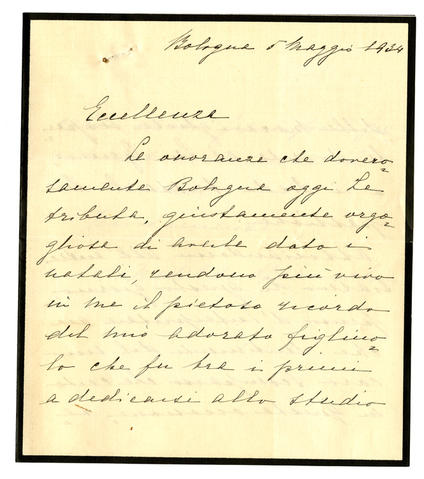 Bologna 5 Maggio 1934
Eccellenza
Le onoranze che dovero-
samente Bologna oggi Le
tributa, giustamente orgo-
gliosa di averle dato i
natali, rendono più vivo
in me il pietoso ricordo
del mio adorato figliuo-
lo che fu tra i primi
a dedicarsi allo studio